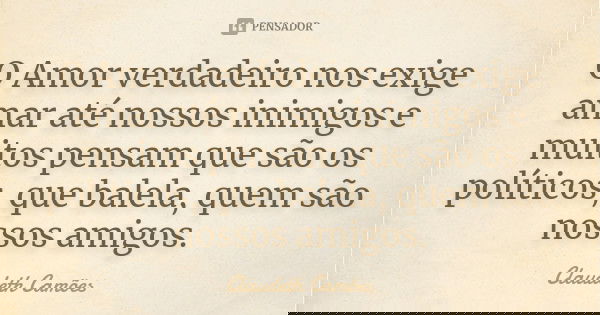 PENSADOR
O Amor verdadeiro nos exige
amar até nossos inimigos e
muitos pensam que são os
políticos, que balela, quem são
nossos amigos.
Claudeth Camões